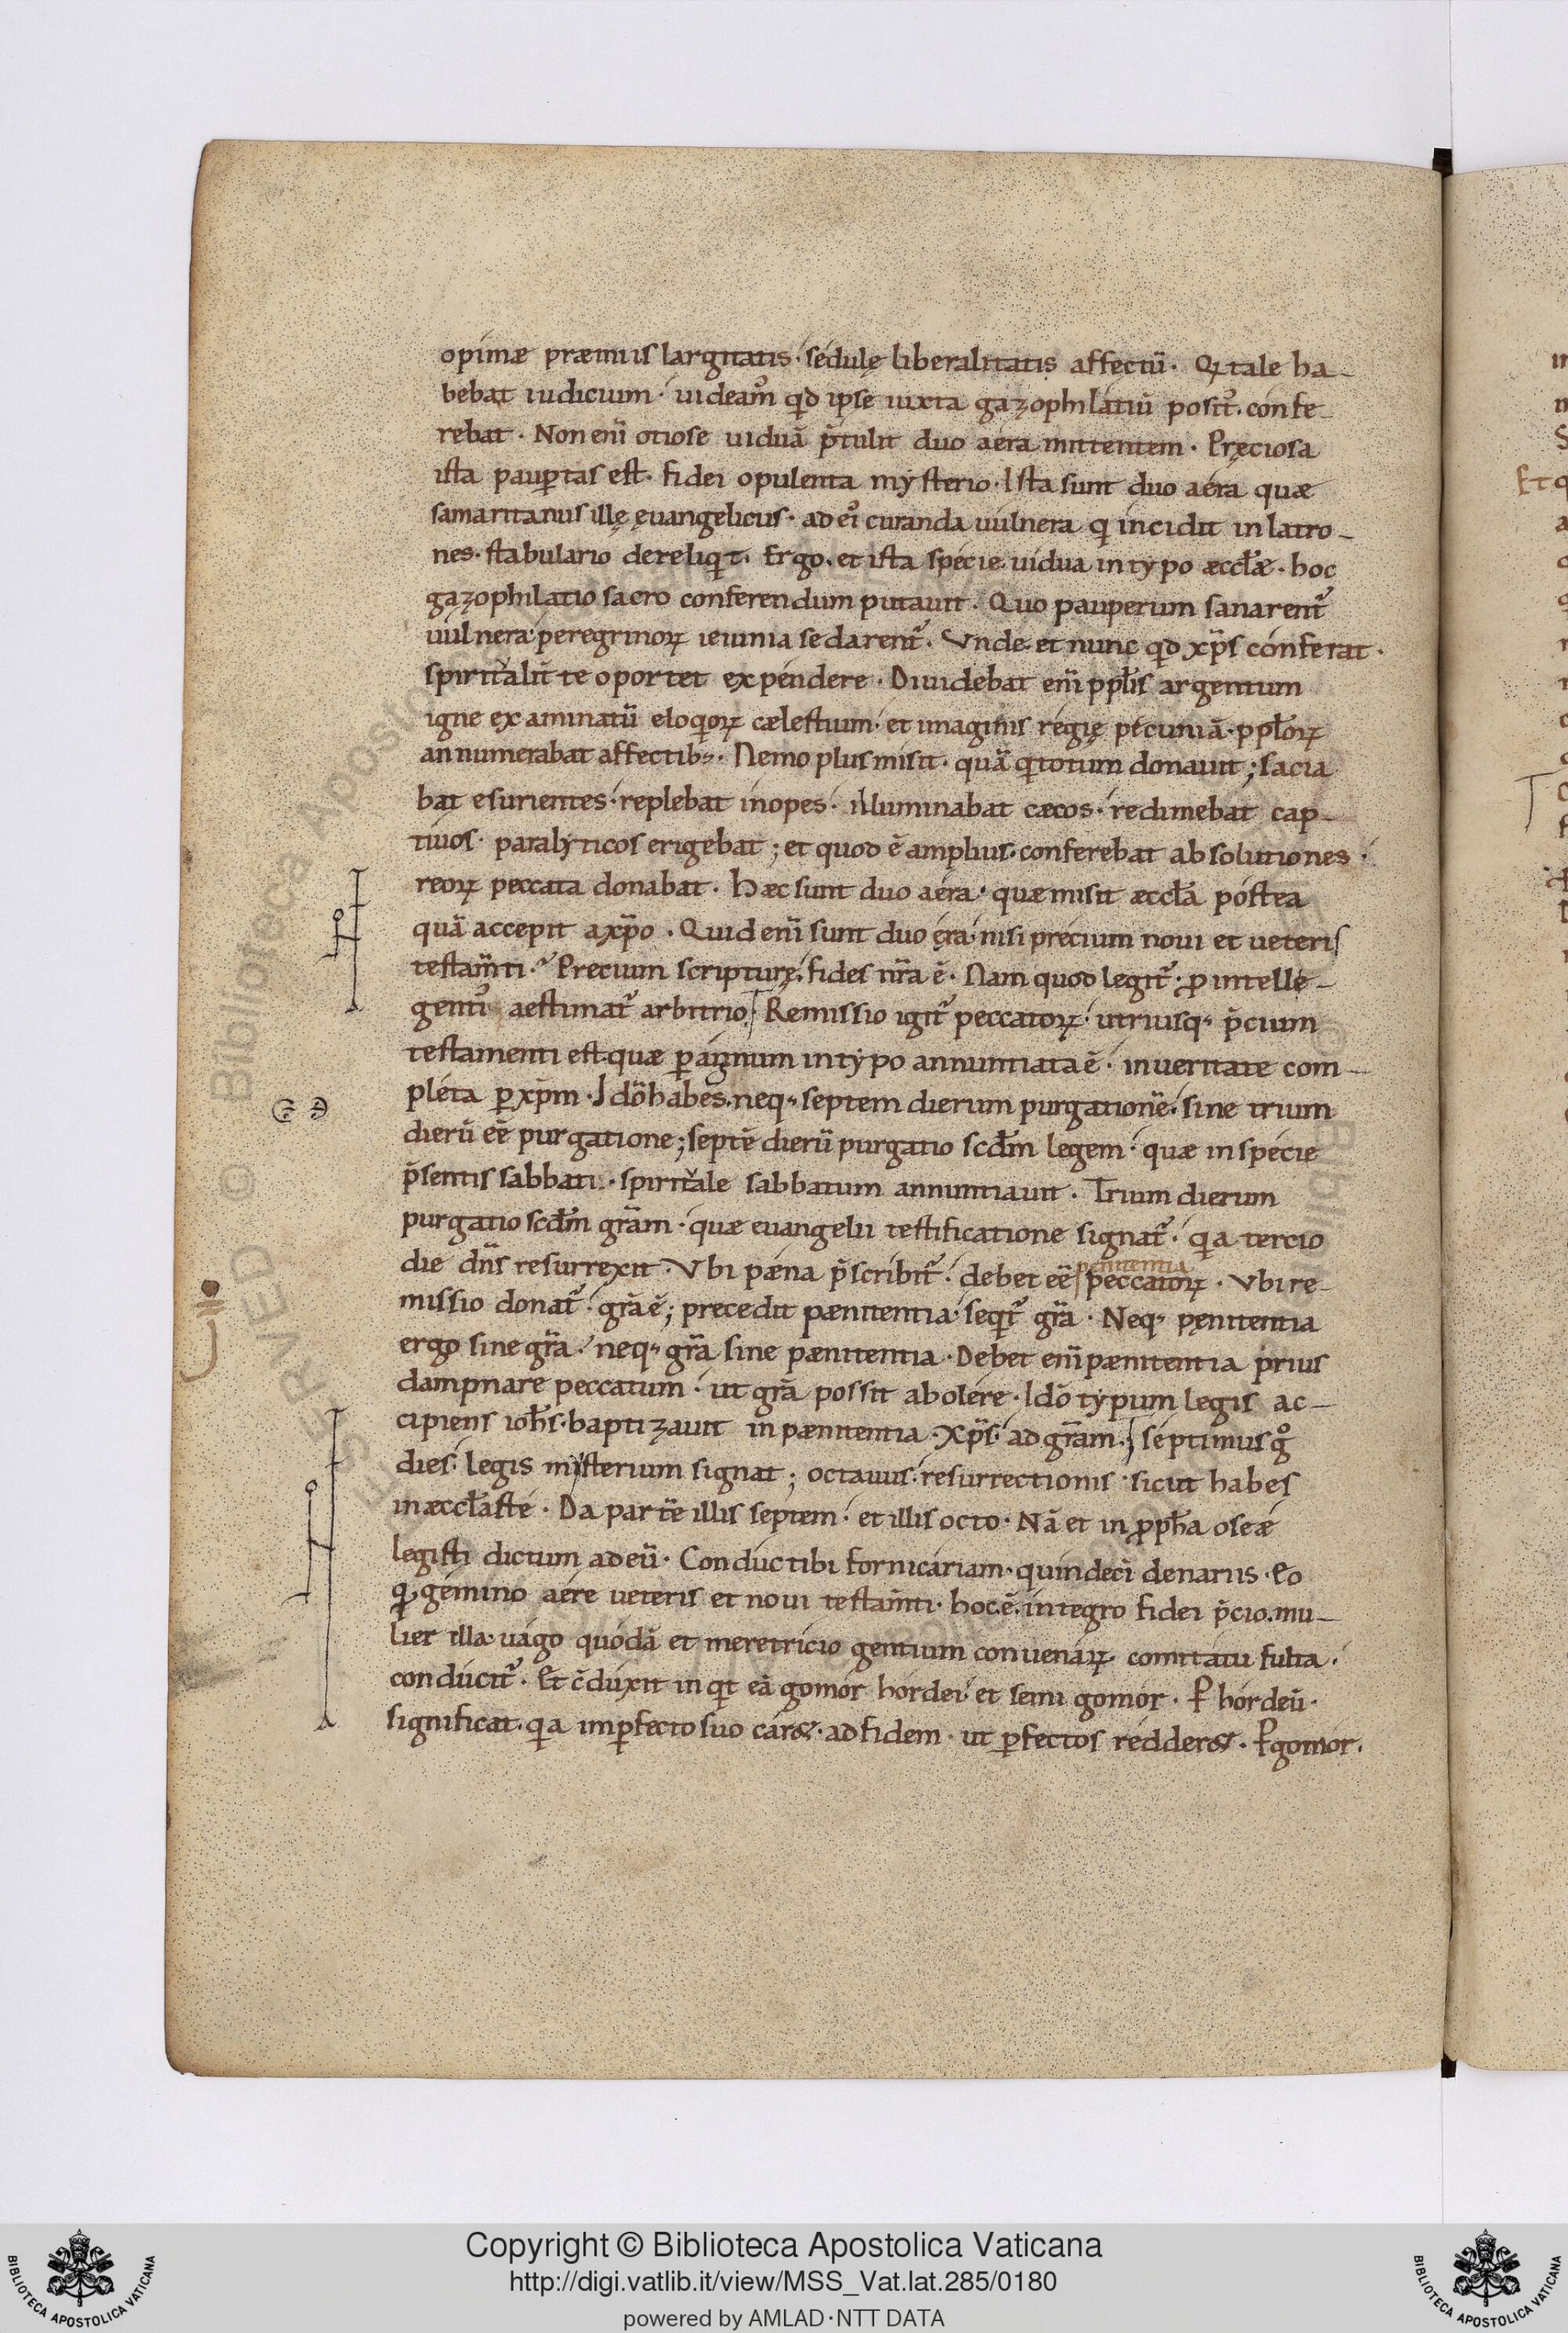 opimæ præmiis largitatis · sedulę liberalitatis affectū · Q̶ tale ha-
bebat iudicium · uideam᷒ qd ipse iuxta gazophilatiū posit᷒ · confe-
rebat · Non enī otiose uiduā p̄tulit duo aera mittentem · Pręciosa
ista paup̱tas est · fidei opulenta mysterio · Ista sunt duo aera quæ
samaritanus ille ęuangelicus · ad ei᷒ curanda uulnera q incidit in latro-
nes · stabulario dereliqt · Ergo · et ista specie uidua in typo æccłæ · hoc
gazophilatio sacro conferendum putauit · Quo pauperum sanarent᷒
uulnera · peregrinoꝝ ieiunia sedarent᷒ · Vnde et nunc qd xp̄s conferat ·
spirit̄alit̄ te oportet expendere · Diuidebat enī ppłis argentum
igne examinatū eloqioꝝ cælestium · et imaginis regię pecuniā · ppłoꝝ
annumerabat affectib; · Nemo plus misit · quā q totum donauit ; sacia
bat esurientes · replebat inopes · illuminabat cæcos · redimebat cap-
tiuos · paralyticos erigebat ; et quod ē amplius · conferebat absolutiones ·
reoꝝ peccata donabat · Hæc sunt duo aera · quæ misit æccła postea
quā accepit a xp̄o · Quid enī sunt duo ęra · nisi precium noui et ueteris
testam̄ti · Precium scripturę · fides nr̄a ē · Nam quod legit᷒ · ꝓ intelle-
genti᷒ aestimat᷒ arbitrio · Remissio igit᷒ peccatoꝝ · utriusq; p̄cium
testamenti est · quæ ꝑ agnum in typo annuntiata ē · in ueritate com-
pleta ꝑ xp̄m · Idō habes · neq; septem dierum purgationē · sine trium
dierū eē purgatione ; septē dierū purgatio scd̄m legem · quæ in specie
p̄sentis sabbati · spirit̄ale sabbatum annuntiauit · Trium dierum
purgatio scd̄m gr̄am · quæ euangelii testificatione signat᷒ · qia tercio
die dn̄s resurrexit · Vbi pæna p̄scribit᷒ · debet eē penitentia peccatoꝝ · Vbi re-
missio donat᷒ · gr̄a ē ; precedit pænitentia · seqit᷒ gr̄a · Neq; pęnitentia
ergo sine gr̄a · neq; gr̄a sine pænitentia · Debet enī pænitentia prius
dampnare peccatum · ut gr̄a possit abolere · Idō typum legis ac-
cipiens ioħs · baptizauit in pænitentia · Xp̄s · ad gr̄am · septimus g°
dies · legis mysterium signat ; octauus · resurrectionis · sicut habes
in æccłaste · Da partē illis septem · et illis octo · Nā et in ꝓpħa oseæ
legisti dictum ad eū · Conduc tibi fornicariam · quindecī denariis · Eo
q gemino aere ueteris et noui testam̄ti · hoc ē · integro fidei p̄cio · mu-
lier illa · uago quodā et meretricio gentium conuenaꝝ · comitatu fulta ·
conducit᷒ · Et c̄duxit inqt eā gomor hordei · et semi gomor · P̱ hordeū ·
significat · qia imꝑfecto suo caros · ad fidem · ut ꝑfectos redderet · P̱ gomor ·
Copyright © Biblioteca Apostolica Vaticana
http://digi.vatlib.it/view/MSS_Vat.lat.285/0180
powered by AMLAD·NTT DATA